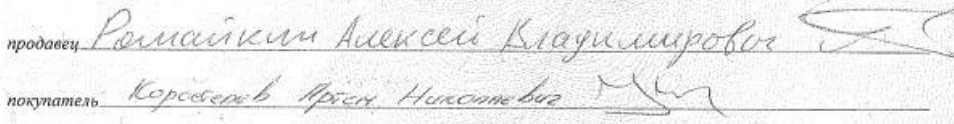 продавец Ромайкин Алексей Владимирович
покупатель Артем Николаевич